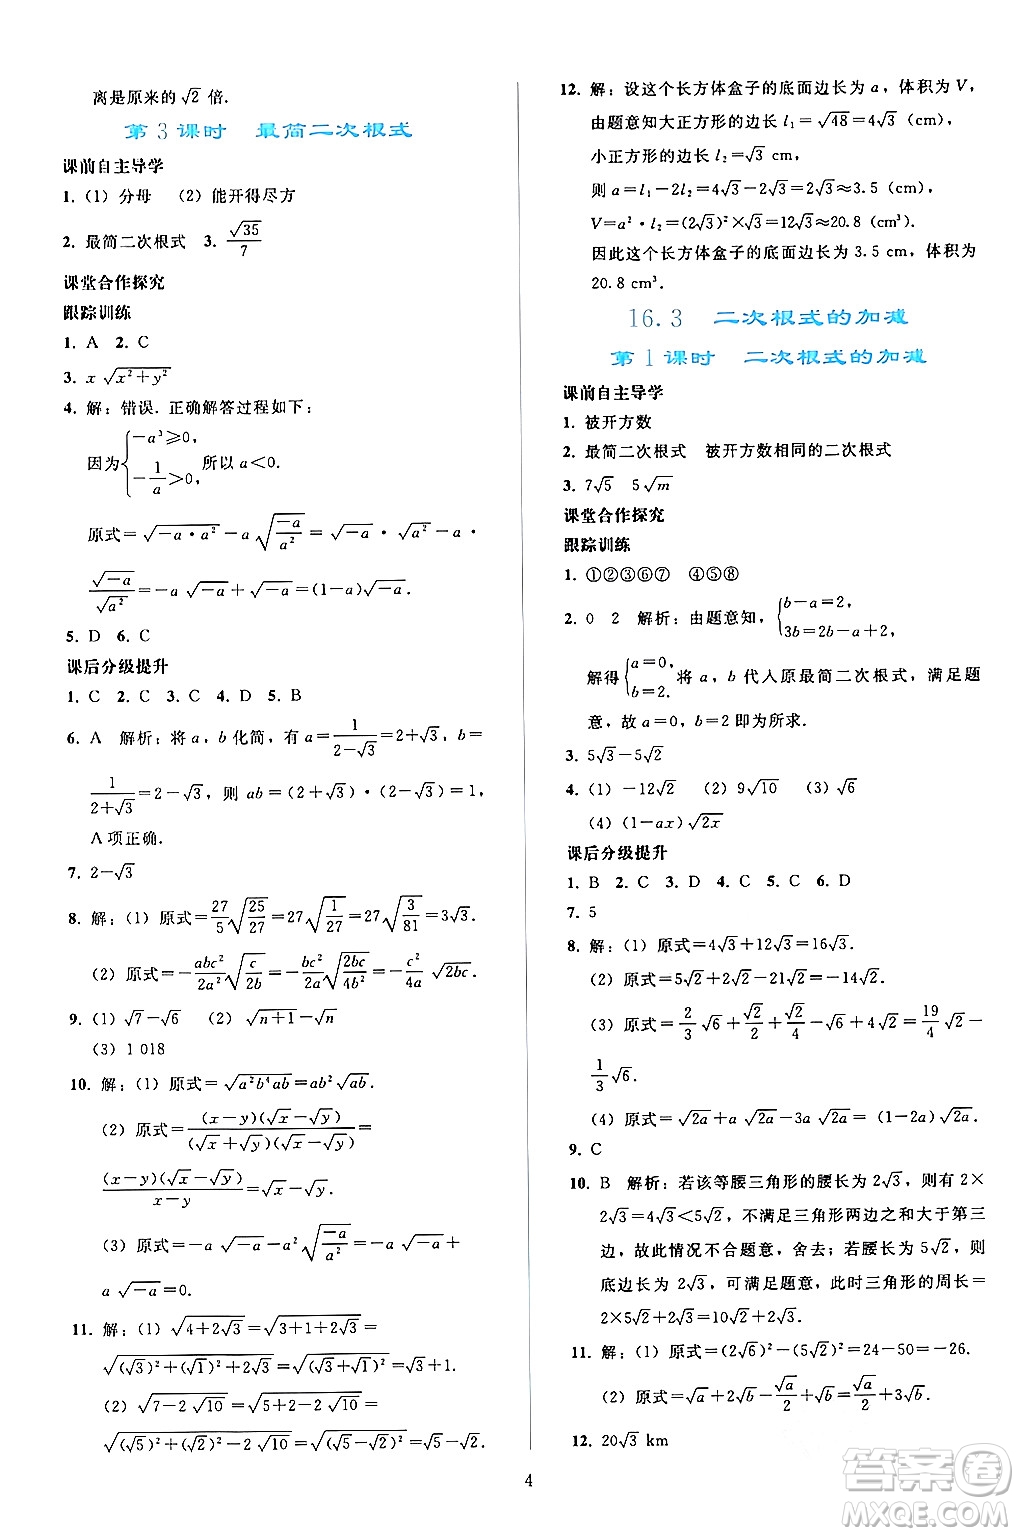 离是原来的 √2 倍.
第 3 课时　最简二次根式
课前自主导学
1. (1) 分母　(2) 能开得尽方
2. 最简二次根式　3. √35/7
课堂合作探究
跟踪训练
1. A　2. C
3. x √(x²+y²)
4. 解：错误. 正确解答过程如下：
因为{−a³≥0, −1/a>0, 所以 a<0.
原式=√(−a·a²)−a√(−a/a²)=√(−a)·√(a²)−a·
√(−a)/√(a²)=−a√(−a)+√(−a)=(1−a)√(−a).
5. D　6. C
课后分级提升
1. C　2. C　3. C　4. D　5. B
6. A　解析：将 a，b 化简，有 a=1/(2−√3)=2+√3，b=
1/(2+√3)=2−√3，则 ab=(2+√3)·(2−√3)=1，
A 项正确.
7. 2−√3
8. 解：(1) 原式=27/5√(25/27)=27√(1/27)=27√(3/81)=3√3.
(2) 原式=−abc²/2a²√(c/2b)=−bc²/2a√(2bc/4b²)=−c²/4a √(2bc).
9. (1) √7−√6　(2) √(n+1)−√n
(3) 1 018
10. 解：(1) 原式=√(a²b⁴ab)=ab²√(ab).
(2) 原式=(x−y)(√x−√y)/(√x+√y)(√x−√y)=
(x−y)(√x−√y)/(x−y)=√x−√y.
(3) 原式=−a√(−a)−a²√(−a/a²)=−a√(−a)+
a√(−a)=0.
11. 解：(1) √(4+2√3)=√(3+1+2√3)=
√((√3)²+(√1)²+2√3)=√((√3+1)²)=√3+1.
(2) √(7−2√10)=√(5+2−2√10)=
√((√5)²+(√2)²−2√10)=√((√5−√2)²)=√5−√2.
12. 解：设这个长方体盒子的底面边长为 a，体积为 V，
由题意知大正方形的边长 l₁=√48=4√3 (cm)，
小正方形的边长 l₂=√3 (cm)，
则 a=l₁−2l₂=4√3−2√3=2√3≈3.5 (cm)，
V=a²·l₂=(2√3)²×√3=12√3≈20.8 (cm).
因此这个长方体盒子的底面边长为 3.5 cm，体积为
20.8 cm³.
16.3　二次根式的加减
第 1 课时　二次根式的加减
课前自主导学
1. 被开方数
2. 最简二次根式　被开方数相同的二次根式
3. 7√5　5√m
课堂合作探究
跟踪训练
1. ①②③⑥⑦　④⑤⑧
2. 0　2　解析：由题意知，{b−a=2, 3b=2b−a+2,
解得{a=0, b=2. 将 a，b 代入原最简二次根式，满足题
意，故 a=0，b=2 即为所求.
3. 5√3−5√2
4. (1) −12√2　(2) 9√10　(3) √6
(4) (1−ax)√(2x)
课后分级提升
1. B　2. C　3. D　4. C　5. C　6. D
7. 5
8. 解：(1) 原式=4√3+12√3=16√3.
(2) 原式=5√2+2√2−21√2=−14√2.
(3) 原式=2/3√6+√2/2+√2/4−√6+4√2=19/4√2−
1/3√6.
(4) 原式=√(2a)+a√(2a)−3a√(2a)=(1−2a)√(2a).
9. C
10. B　解析：若该等腰三角形的腰长为 2√3，则有 2×
2√3=4√3<5√2，不满足三角形两边之和大于第三
边，故此情况不合题意，舍去；若腰长为 5√2，则
底边长为 2√3，可满足题意，此时三角形的周长=
2×5√2+2√3=10√2+2√3.
11. 解：(1) 原式=(2√6)²−(5√2)²=24−50=−26.
(2) 原式=√a+2√a−√a/2+√a/2=3√a.
12. 20√3 km
4
答案圈
MXQE.COM